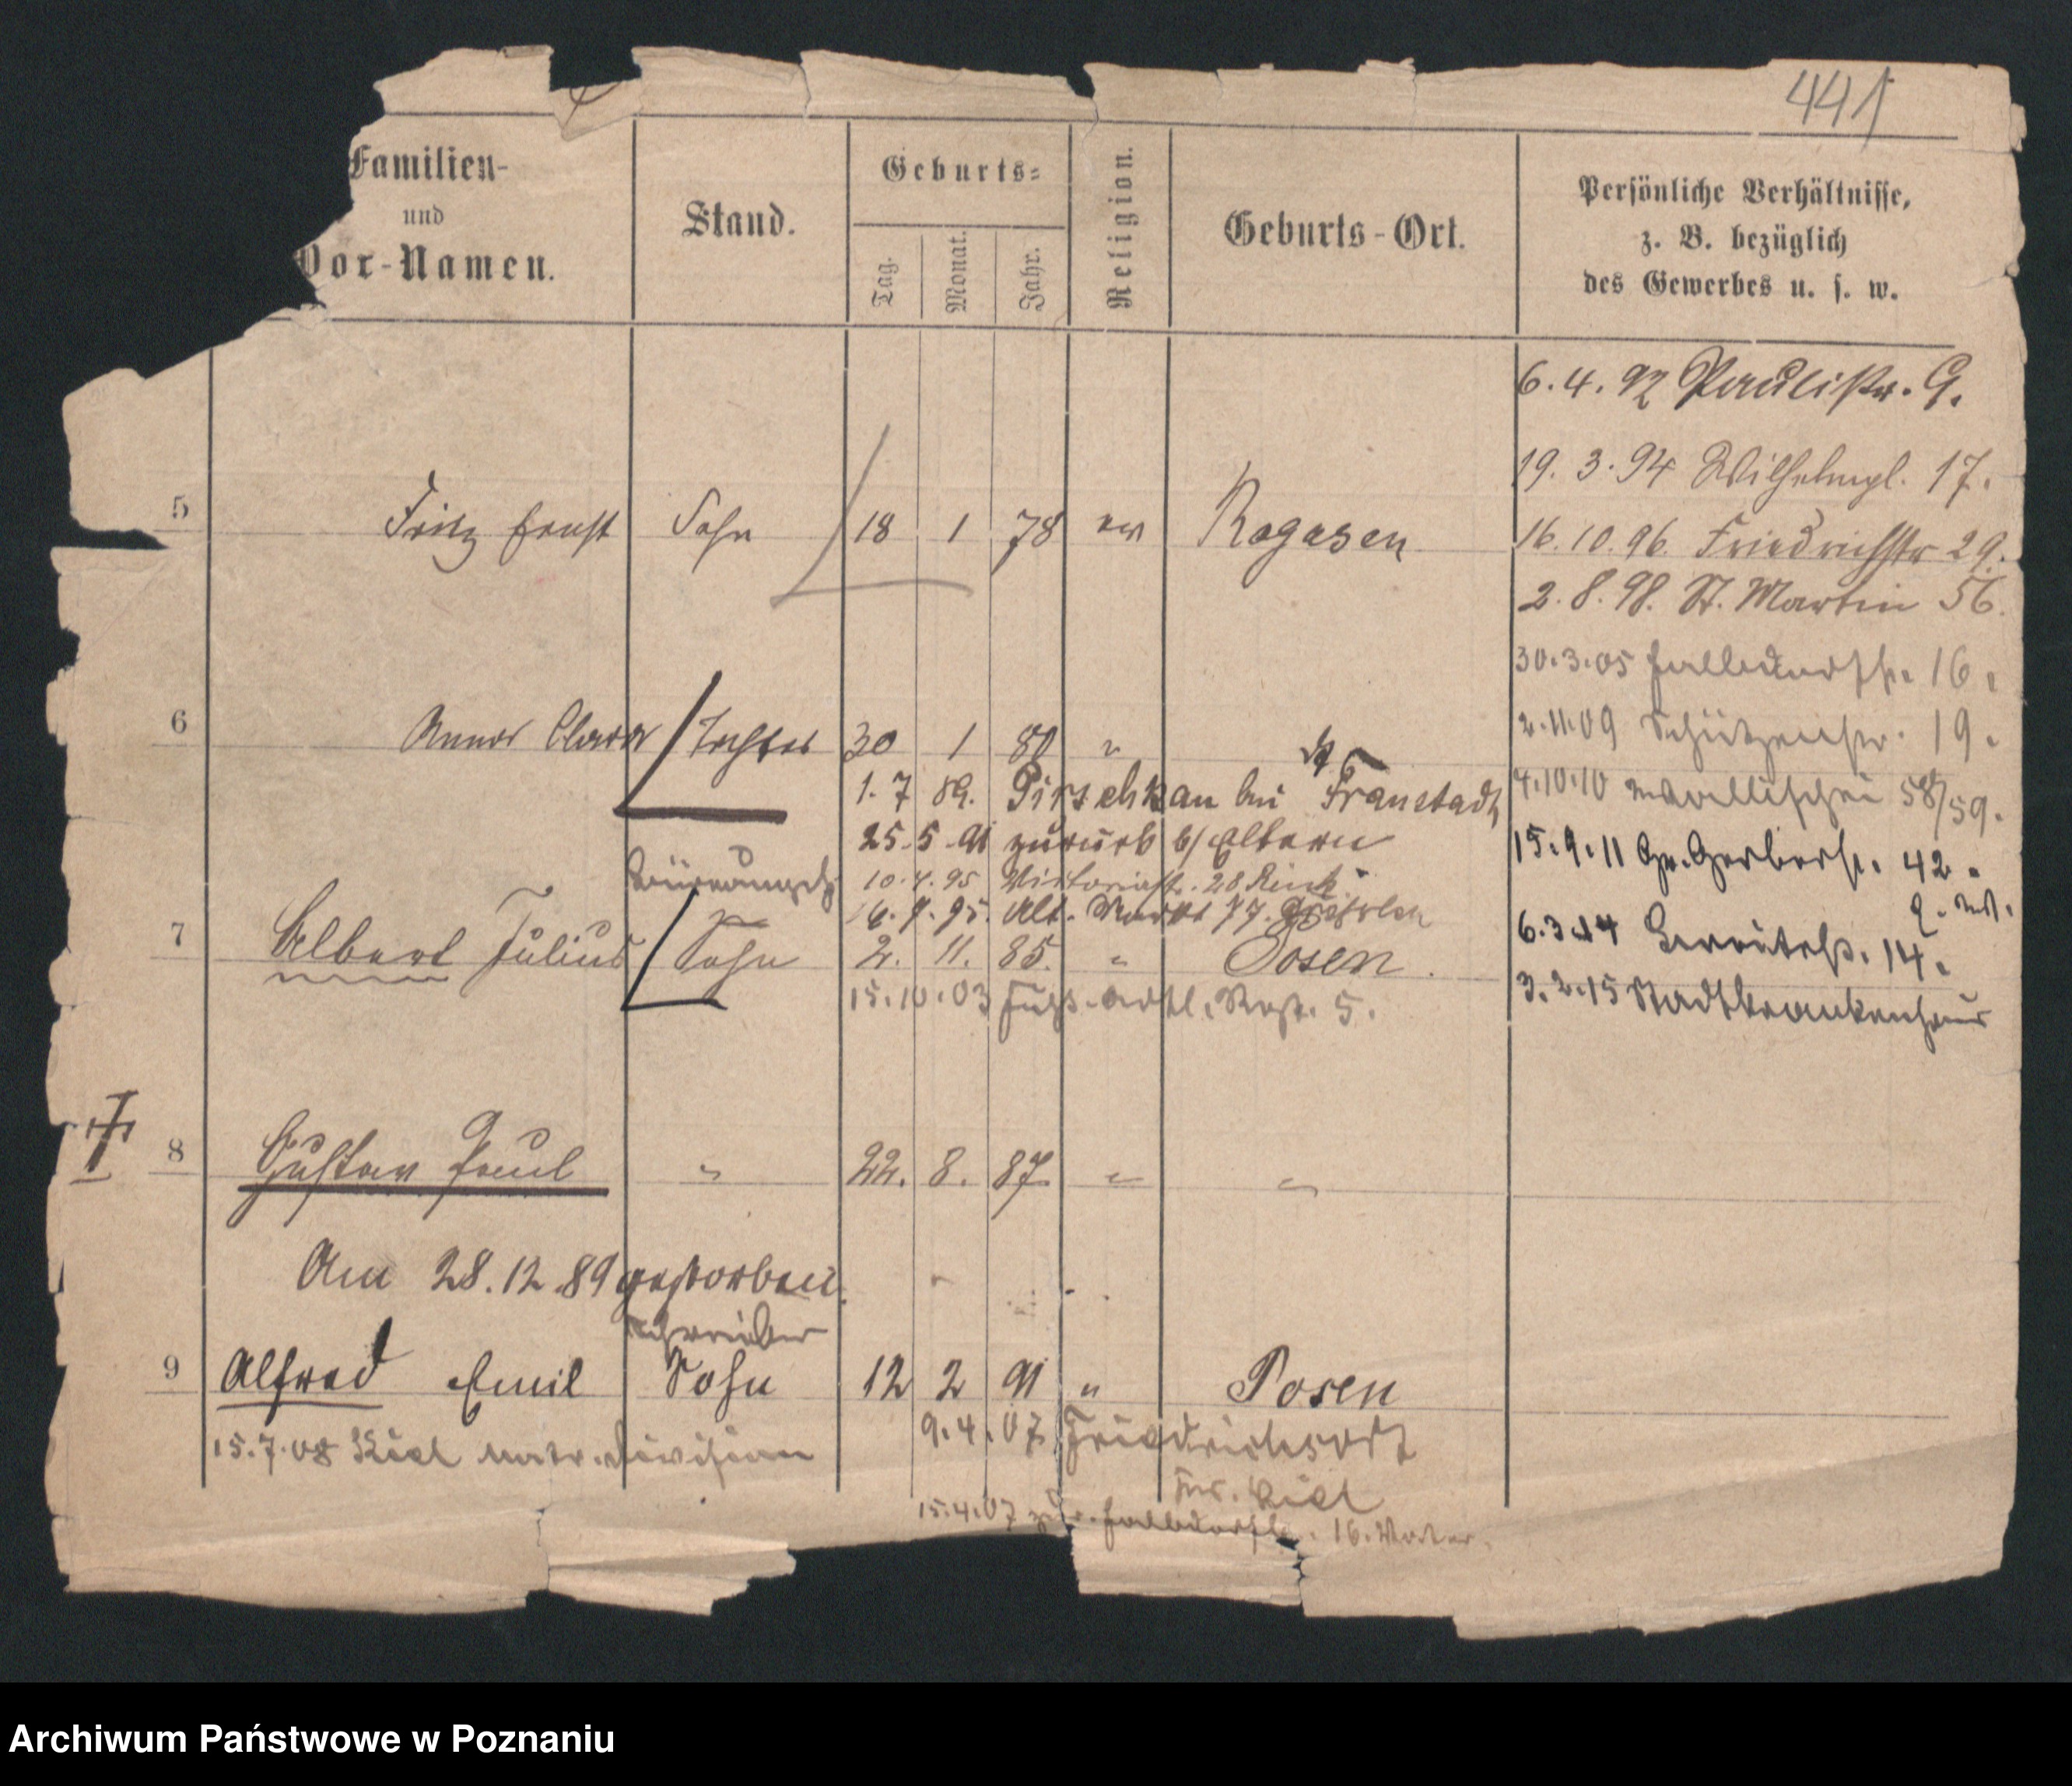 441
Familien-
und
Vor-Namen.
Stand.
Geburts-
Tag.
Monat.
Jahr.
Religion.
Geburts-Ort.
Persönliche Verhältnisse,
z. B. bezüglich
des Gewerbes u. s. w.
6. 4. 92 Paulistr. 9.
19. 3. 94 Wilhelmpl. 17.
5 Fritz Ernst Sohn 18 1 78 ev Rogasen
16. 10. 96. Friedrichstr 29.
2. 8. 98. St. Martin 56.
30. 3. 05 Halbdorfstr. 16.
6 Anna Clara Tochter 30 1 80 "
2. 11. 09 Schützenstr. 19.
1. 7 89. Pirschkau bei Fraustadt
4. 10. 10 Wallischei 58/59.
25. 5. 91 zurück b/ Eltern
15. 9. 11 Gr. Gerberstr. 42.
10. 4. 95 Viktoriastr. 28
16. 9. 95. Alt. Markt 77.
7 Albert Julius Sohn 2. 11. 85. " Posen.
6. 3. 14 14.
15. 10. 03 Fuß-Artl. Regt. 5.
3. 2. 15 Stadtkrankenhaus
8 Gustav Paul " 22. 8. 87 " "
Am 28. 12. 89 gestorben.
Schreiber
9 Alfred Emil Sohn 12 2 91 " Posen
9. 4. 07 Friedrichsort
15. 7. 08 Kiel Matr. Division
Kiel
15. 4. 07 zur. Halbdorfstr. 16. Vater.
Archiwum Państwowe w Poznaniu